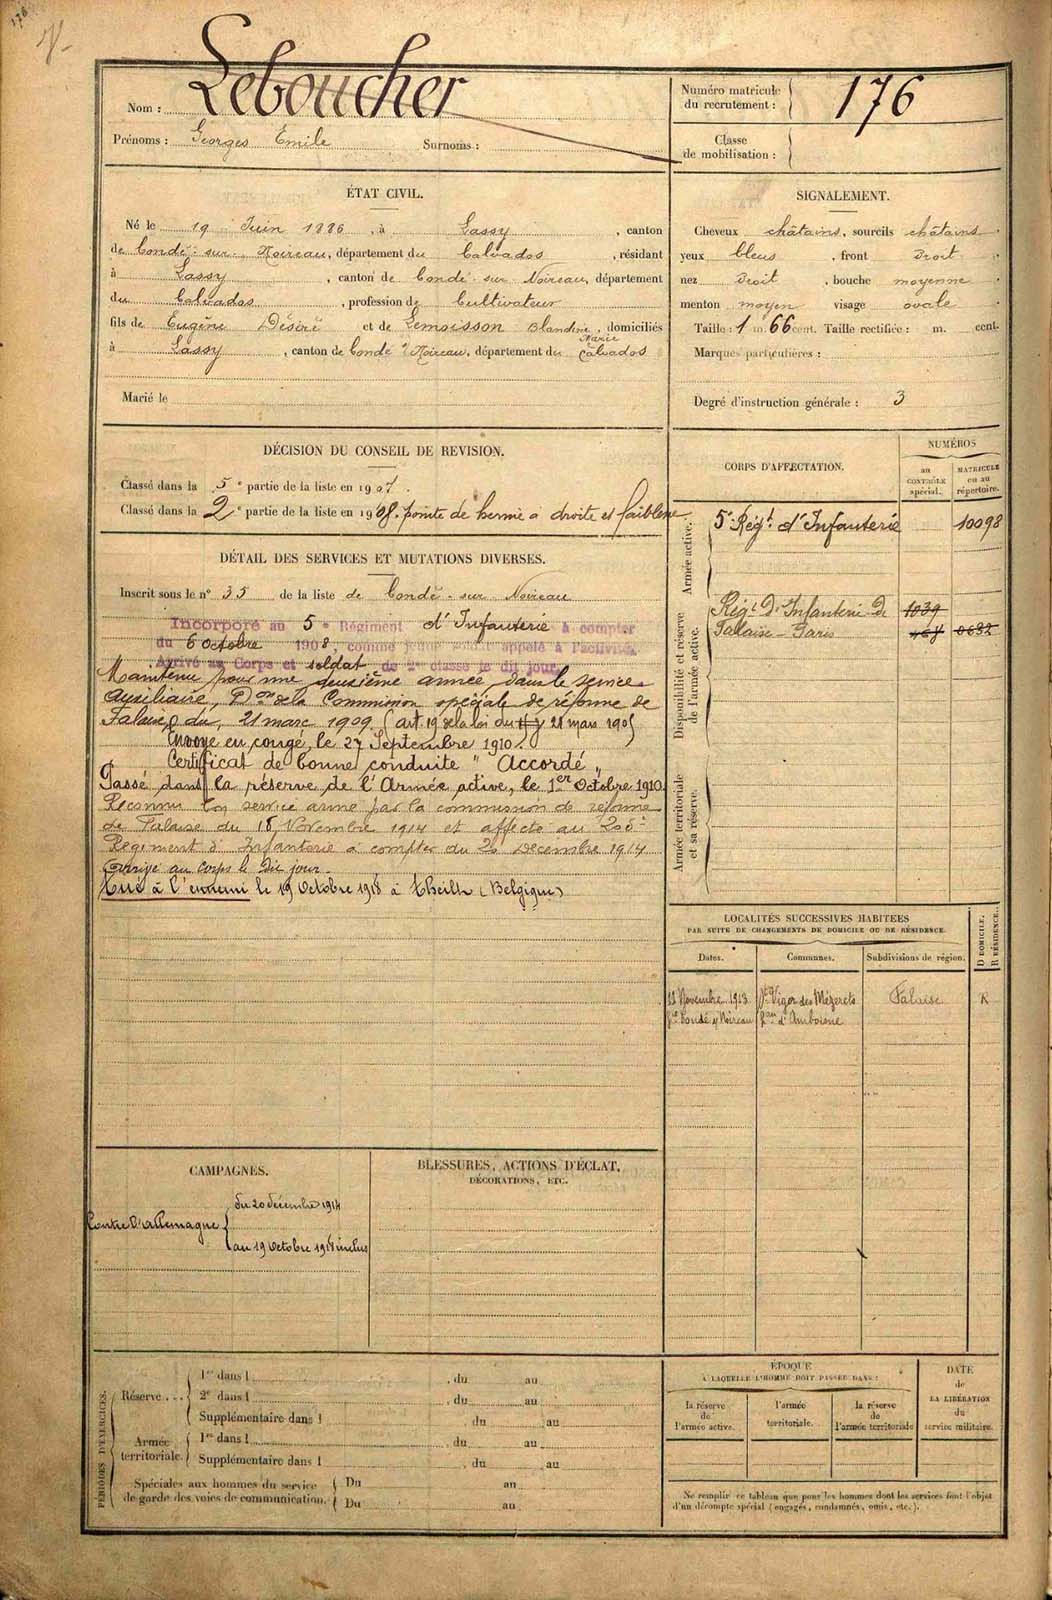 176
Nom : Leboucher
Prénoms : Georges Emile Surnoms :
Numéro matricule
du recrutement : 176
Classe
de mobilisation :
ÉTAT CIVIL.
Né le 19 Juin 1886, à Lassy, canton
de Condé-sur-Noireau, département du Calvados, résidant
à Lassy, canton de Condé-sur-Noireau, département
du Calvados, profession de Cultivateur
fils de Eugène Désiré et de Lemoisson Blandine Marie, domiciliés
à Lassy, canton de Condé s/ Noireau, département du Calvados
Marié le
SIGNALEMENT.
Cheveux châtains, sourcils châtains
yeux bleus, front Droit
nez Droit, bouche moyenne
menton moyen visage ovale
Taille : 1 m. 66 cent. Taille rectifiée : m. cent.
Marques particulières :
Degré d'instruction générale : 3
DÉCISION DU CONSEIL DE REVISION.
Classé dans la 5e partie de la liste en 1907.
Classé dans la 2e partie de la liste en 1908. pointe de hernie à droite et faiblesse
DÉTAIL DES SERVICES ET MUTATIONS DIVERSES.
Inscrit sous le n° 35 de la liste de Condé-sur-Noireau
Incorporé au 5e Régiment d'Infanterie à compter
du 6 octobre 1908, comme jeune soldat appelé à l'activité.
Arrivé au Corps et soldat de 2e classe le dit jour.
Maintenu pour une deuxième année dans le service
Auxiliaire, Don de la Commission spéciale de réforme de
Falaise du, 21 mars 1909 (art 19 de la loi du 21 mars 1905)
Envoyé en congé, le 27 Septembre 1910.
Certificat de bonne conduite "Accordé"
Passé dans la réserve de l'Armée active, le 1er Octobre 1910
Reconnu bon service armé par la commission de réforme
de Falaise du 18 Novembre 1914 et affecté au 205e
Régiment d'Infanterie à compter du 20 Décembre 1914
Arrivé au Corps le Dit jour.
Tué à l'ennemi le 19 Octobre 1918 à Theilh (Belgique)
CORPS D'AFFECTATION.
NUMÉROS
au CONTRÔLE spécial.
MATRICULE ou au répertoire.
Armée active.
5e Régt. d'Infanterie 10098
Disponibilité et réserve de l'armée active.
Régt. D'Infanterie de 1039
Falaise-Paris
Armée territoriale et sa réserve.
LOCALITÉS SUCCESSIVES HABITÉES
PAR SUITE DE CHANGEMENTS DE DOMICILE OU DE RÉSIDENCE.
Dates. Communes. Subdivisions de région. D DOMICILE. R RÉSIDENCE.
Novembre 1913 St Vigor des Mézerets Falaise R
Condé s/ Noireau d'Amboisne
CAMPAGNES.
Contre l'Allemagne
du 20 décembre 1914
au 19 Octobre 1918 inclus
BLESSURES, ACTIONS D'ÉCLAT,
DÉCORATIONS, ETC.
PÉRIODES D'EXERCICES.
Réserve...
1re dans l , du au
2e dans l , du au
Supplémentaire dans l , du au
Armée territoriale.
1re dans l , du au
Supplémentaire dans l , du au
Spéciales aux hommes du service
de garde des voies de communication.
Du au
Du au
ÉPOQUE
À LAQUELLE L'HOMME DOIT PASSER DANS :
la réserve de l'armée active.
l'armée territoriale.
la réserve de l'armée territoriale
DATE
de
LA LIBÉRATION
du
service militaire.
Ne remplir ce tableau que pour les hommes dont les services font l'objet
d'un décompte spécial (engagés, condamnés, omis, etc.).